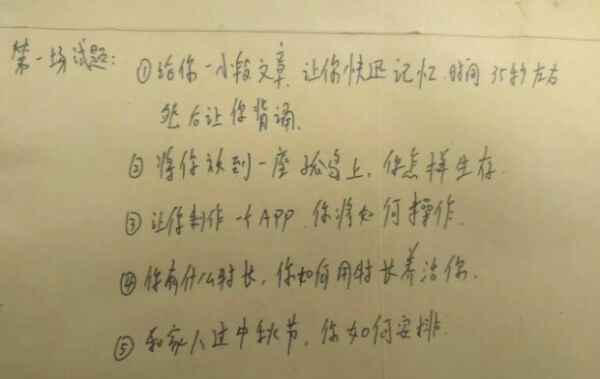 第一场试题：①给你一小段文章，让你快速记忆，时间35秒左右
然后让你背诵。
②将你放到一座孤岛上，你怎样生存。
③让你制作一个APP，你将如何操作。
④你有什么特长，你如何用特长养活你。
⑤和家人过中秋节，你如何安排。